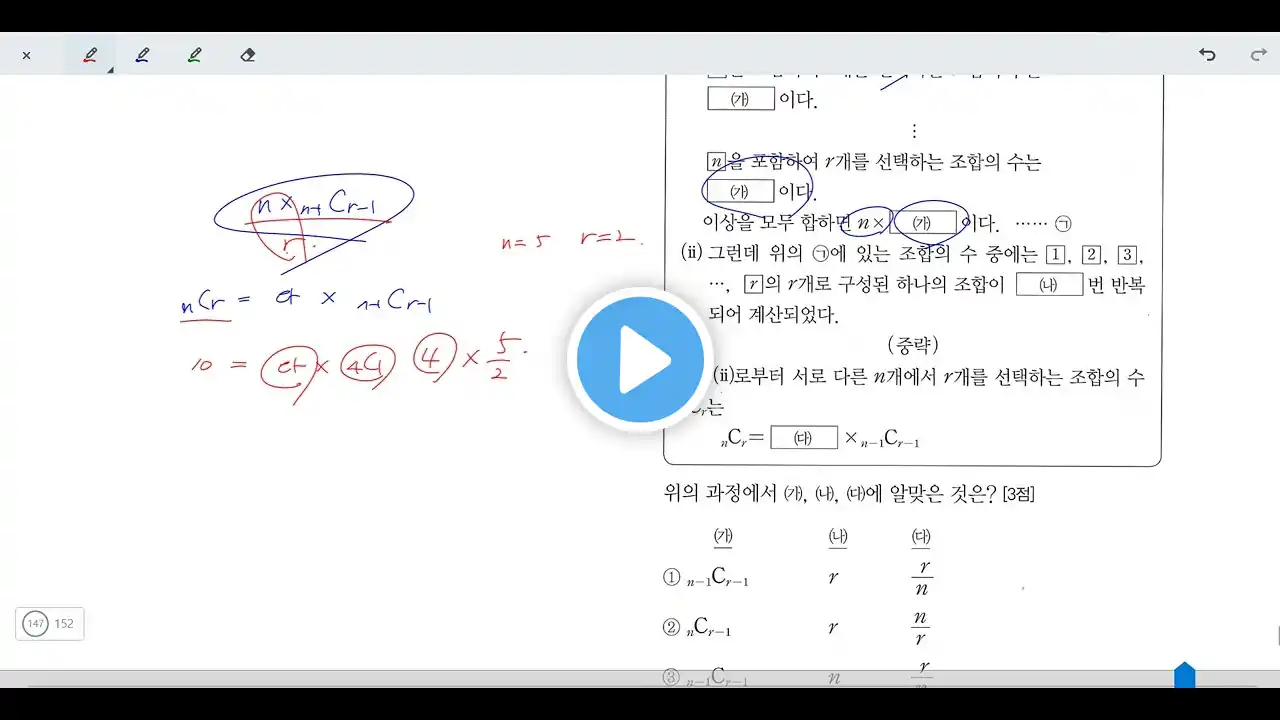 (가) 이다.
⋮
n을 포함하여 r개를 선택하는 조합의 수는
(가) 이다.
이상을 모두 합하면 n× (가) 이다. …… ㉠
(ii) 그런데 위의 ㉠에 있는 조합의 수 중에는 1, 2, 3,
…, r의 r개로 구성된 하나의 조합이 (나) 번 반복
되어 계산되었다.
(중략)
(ii)로부터 서로 다른 n개에서 r개를 선택하는 조합의 수
는
nCr= (다) ×n−1Cr−1
위의 과정에서 (가), (나), (다)에 알맞은 것은? [3점]
(가) (나) (다)
① n−1Cr−1 r r/n
② nCr−1 r n/r
③ n−1Cr−1 n r/n
n × n-1Cr-1
r
n=5 r=2.
nCr = 다 × n-1Cr-1
10 = 다 × 4C1 4 × 5/2
147 152